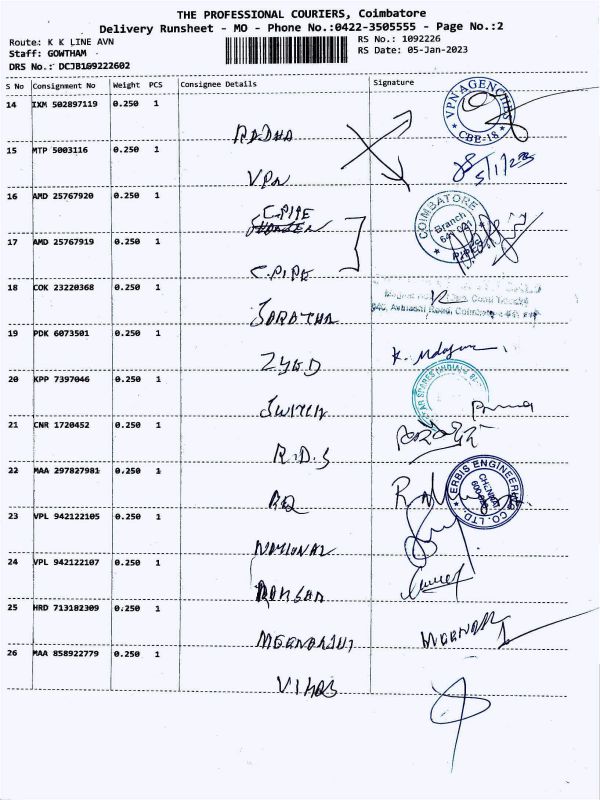 THE PROFESSIONAL COURIERS, Coimbatore
Delivery Runsheet - MO - Phone No.:0422-3505555 - Page No.:2
Route: K K LINE AVN
RS No.: 1092226
Staff: GOWTHAM
RS Date: 05-Jan-2023
DRS No.: DCJB109222602
S No Consignment No Weight PCS Consignee Details Signature
14 IXM 502897119 0.250 1 RADHA
VPN AGENCIES
CBE-18
15 MTP 5003116 0.250 1 VPN
5/1/23
16 AMD 25767920 0.250 1 C.PIPE
COIMBATORE
Branch
641 021
PIPES
17 AMD 25767919 0.250 1 C.PIPE
18 COK 23220368 0.250 1 SARATHA
Avinashi Road, Coimbatore
19 PDK 6073501 0.250 1 ZYGO
20 KPP 7397046 0.250 1 SWITCH
21 CNR 1720452 0.250 1 R.D.S
22 MAA 297827981 0.250 1 RQ
ERBIS ENGINEERING CO. LTD.
CHENNAI
23 VPL 942122105 0.250 1 NATIONAL
24 VPL 942122107 0.250 1
25 HRD 713182309 0.250 1 MEENAKSHI
26 MAA 858922779 0.250 1 VIKAS